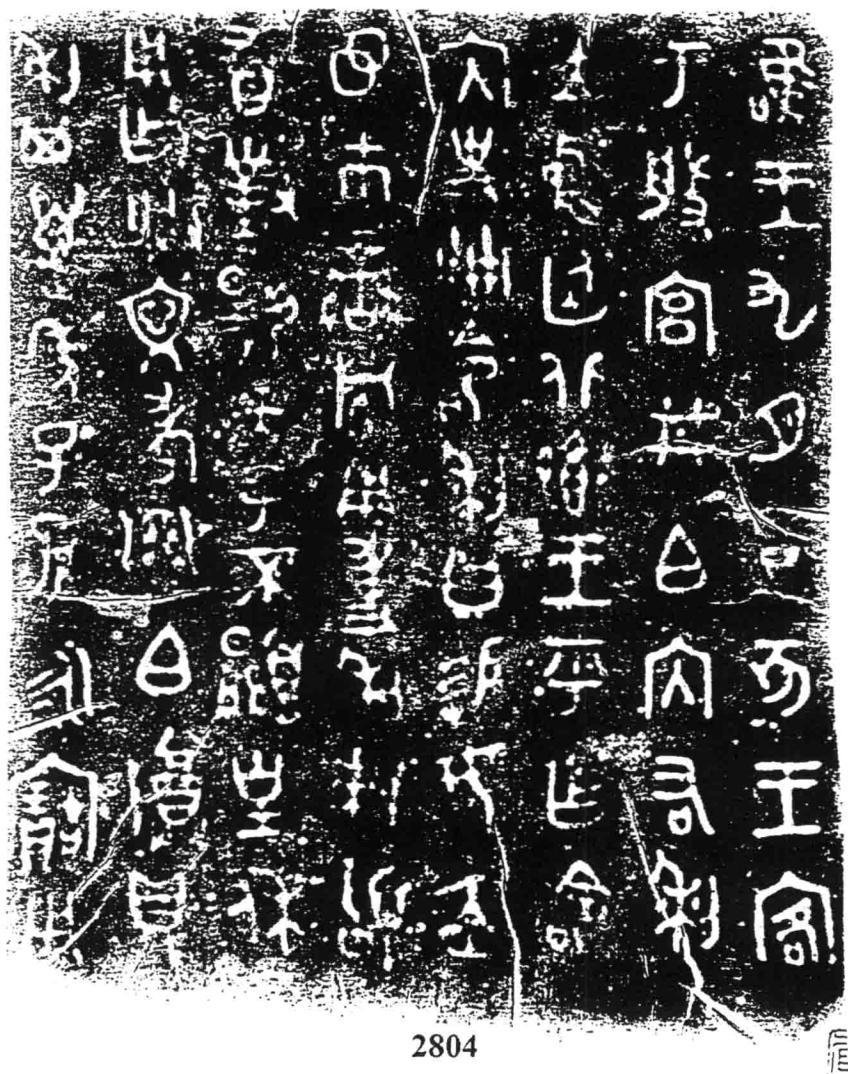 唯王九月丁亥王客
于般宮井白內右利
立中廷北鄉王乎乍命
內史冊令利曰易女赤
𢀜巿䜌旂用事利拜𩒨
首對揚天子不顯皇休
用乍朕文考𣶒白尊鼎
利其萬年子孫永寶用
2804